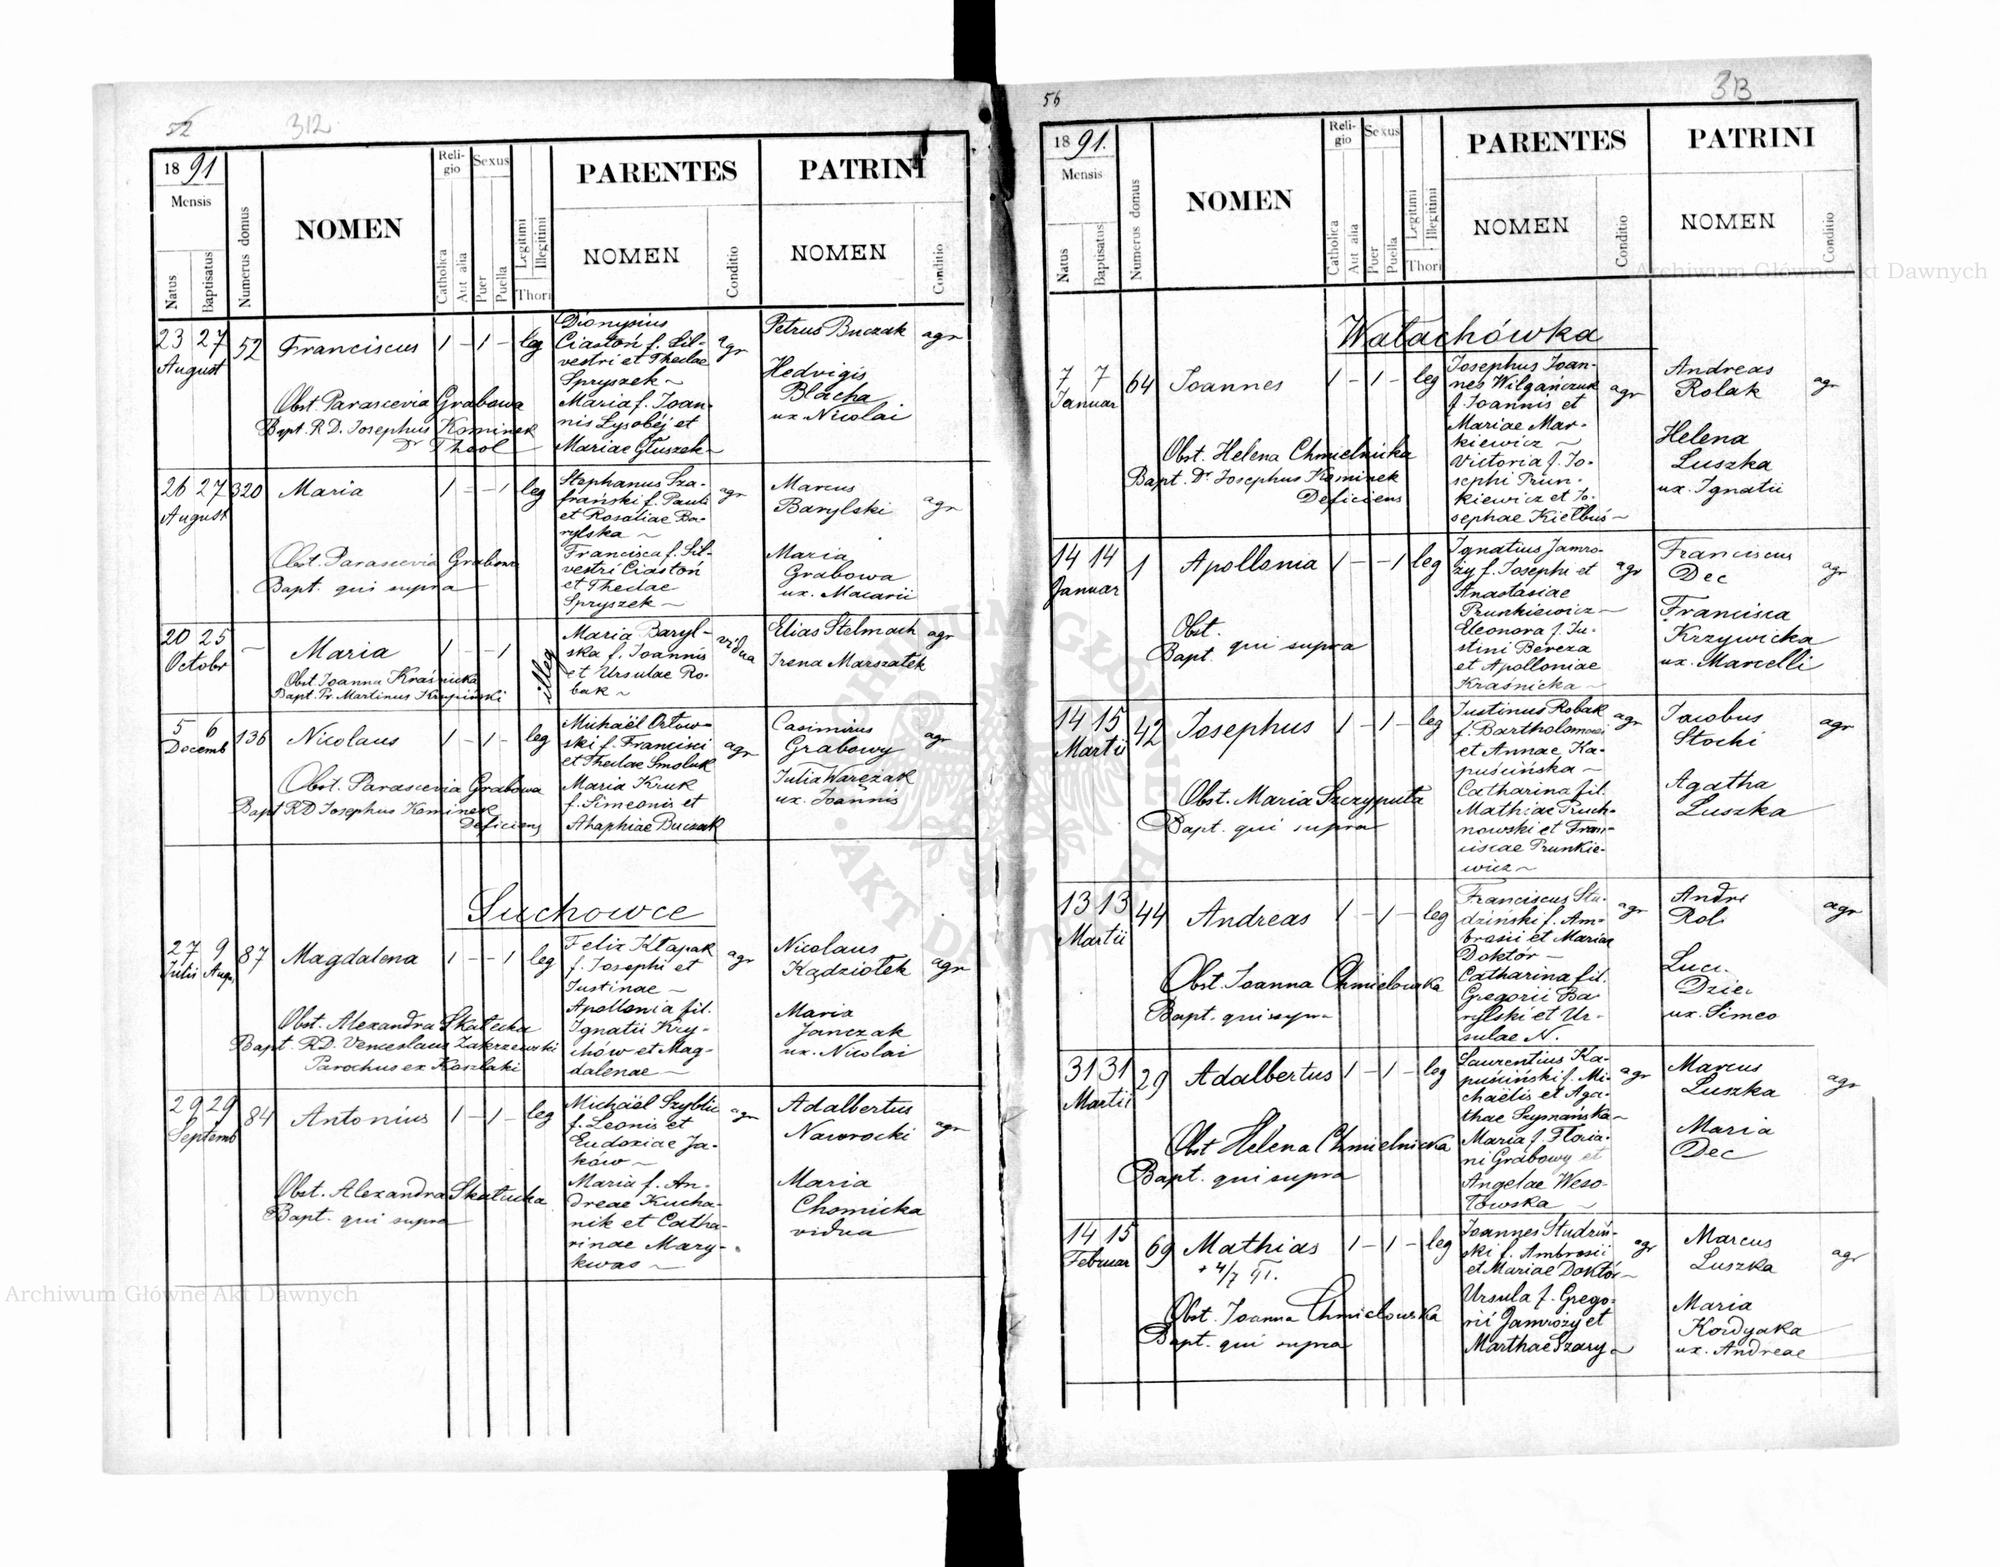 52
312
1891
Mensis
Natus
Baptisatus
Numerus domus
NOMEN
Religio
Catholica
Aut alia
Sexus
Puer
Puella
Legitimi
Illegitimi
Thori
PARENTES
NOMEN
Conditio
PATRINI
NOMEN
Conditio
23 27
August
52
Franciscus
1 – 1 –
leg
Dionysius
Ciastoń f. Sil-
vestri et Theclae
Spryszek ~
Maria f. Joan-
nis Lysobéj et
Mariae Głuszek ~
agr
Petrus Buczak
agr
Hedvigis
Blacha
ux. Nicolai
Obst. Parascevia Grabowa
Bapt. R. D. Josephus Kominek
Dr Theol
26 27
August
320
Maria
1 – – 1
leg
Stephanus Sza-
frański f. Pauli
et Rosaliae Ba-
rylska ~
Francisca f. Sil-
vestri Ciastoń
et Theclae
Spryszek ~
agr
Marcus
Barylski
agr
Maria
Grabowa
ux. Macarii
Obst. Parascevia Grabowa
Bapt. qui supra
20 25
Octobr
–
Maria
1 – – 1
illeg
Maria Baryl-
ska f. Joannis
et Ursulae Ro-
bak ~
vidua
Elias Stelmach
agr
Irena Marszałek
Obst. Joanna Kraśnicka
Bapt. Pr. Martinus Krupiński
5 6
Decemb
136
Nicolaus
1 – 1 –
leg
Michaël Orłow-
ski f. Francisci
et Theclae Smoluk
Maria Kruk
f. Simeonis et
Ahaphiae Buczak
agr
Casimirus
Grabowy
agr
Julia Waręzak
ux. Joannis
Obst. Parascevia Grabowa
Bapt RD Josephus Kominek
Deficiens
Suchowce
27 9
Julii Aug.
87
Magdalena
1 – – 1
leg
Felix Kłapak
f. Josephi et
Justinae ~
Apollonia fil.
Ignatii Kry-
chów et Mag-
dalenae ~
agr
Nicolaus
Kądziołek
agr
Maria
Janczak
ux. Nicolai
Obst. Alexandra Skałecka
Bapt. RD. Venceslaus Zakrzewski
Parochus ex Koszlaki
29 29
Septemb
84
Antonius
1 – 1 –
leg
Michäel Szyblic
f. Leonis et
Eudoxiae Ja-
ków ~
Maria f. An-
dreae Kucha-
nik et Catha-
rinae Mary-
kwas ~
agr
Adalbertus
Nawrocki
agr
Maria
Chomicka
vidua
Obst. Alexandra Skałecka
Bapt. qui supra
56
313
1891.
Mensis
Natus
Baptisatus
Numerus domus
NOMEN
Religio
Catholica
Aut alia
Sexus
Puer
Puella
Legitimi
Illegitimi
Thori
PARENTES
NOMEN
Conditio
PATRINI
NOMEN
Conditio
Wałachówka
7 7
Januar
64
Joannes
1 – 1 –
leg
Josephus Joan-
nes Wilgańczuk
f. Joannis et
Mariae Mar-
kiewicz ~
Victoria f. Jo-
sephi Prun-
kiewicz et Jo-
sephae Kiełbuś ~
agr
Andreas
Rolak
agr
Helena
Luszka
ux. Ignatii
Obst. Helena Chmielnicka
Bapt. Dr Josephus Kominek
Deficiens
14 14
Januar
1
Apollonia
1 – – 1
leg
Ignatius Jamro-
zy f. Josephi et
Anastasiae
Prunkiewicz ~
Eleonora f. Ju-
stini Bereza
et Apolloniae
Kraśnicka ~
agr
Franciscus
Dec
agr
Francisca
Krzywicka
ux. Marcelli
Obst.
Bapt. qui supra
14 15
Martii
42
Josephus
1 – 1 –
leg
Justinus Robak
f. Bartholomaei
et Annae Ka-
puścińska ~
Catharina fil.
Mathiae Puch-
nowski et Fran-
ciscae Prunkie-
wicz ~
agr
Jacobus
Stocki
agr
Agatha
Luszka
Obst. Maria Szczyputa
Bapt. qui supra
13 13
Martii
44
Andreas
1 – 1 –
leg
Franciscus Stu-
dziński f. Am-
brosii et Mariae
Doktór –
Catharina fil.
Gregorii Ba-
rylski et Ur-
sulae N.
agr
Andre
Rol
agr
Luci
Dziec
ux. Simeo
Obst. Joanna Chmielowska
Bapt. qui supra
31 31
Martii
29
Adalbertus
1 – 1 –
leg
Laurentius Ka-
puściński f. Mi-
chaëlis et Aga-
thae Szymańska ~
Maria f. Floria-
ni Grabowy et
Angelae Weso-
łowska ~
agr
Marcus
Luszka
agr
Maria
Dec
Obst Helena Chmielnicka
Bapt. qui supra
14 15
Februar
69
Mathias
+ 4/7 91.
1 – 1 –
leg
Joannes Studziń-
ski f. Ambrosii
et Mariae Doktór ~
Ursula f. Grego-
rii Jamroży et
Marthae Szary ~
agr
Marcus
Luszka
agr
Maria
Kordyaka
ux. Andreae
Obst. Joanna Chmielowska
Bapt. qui supra
Archiwum Główne Akt Dawnych
Archiwum Główne Akt Dawnych
ARCHIWUM GŁÓWNE
AKT DAWNYCH